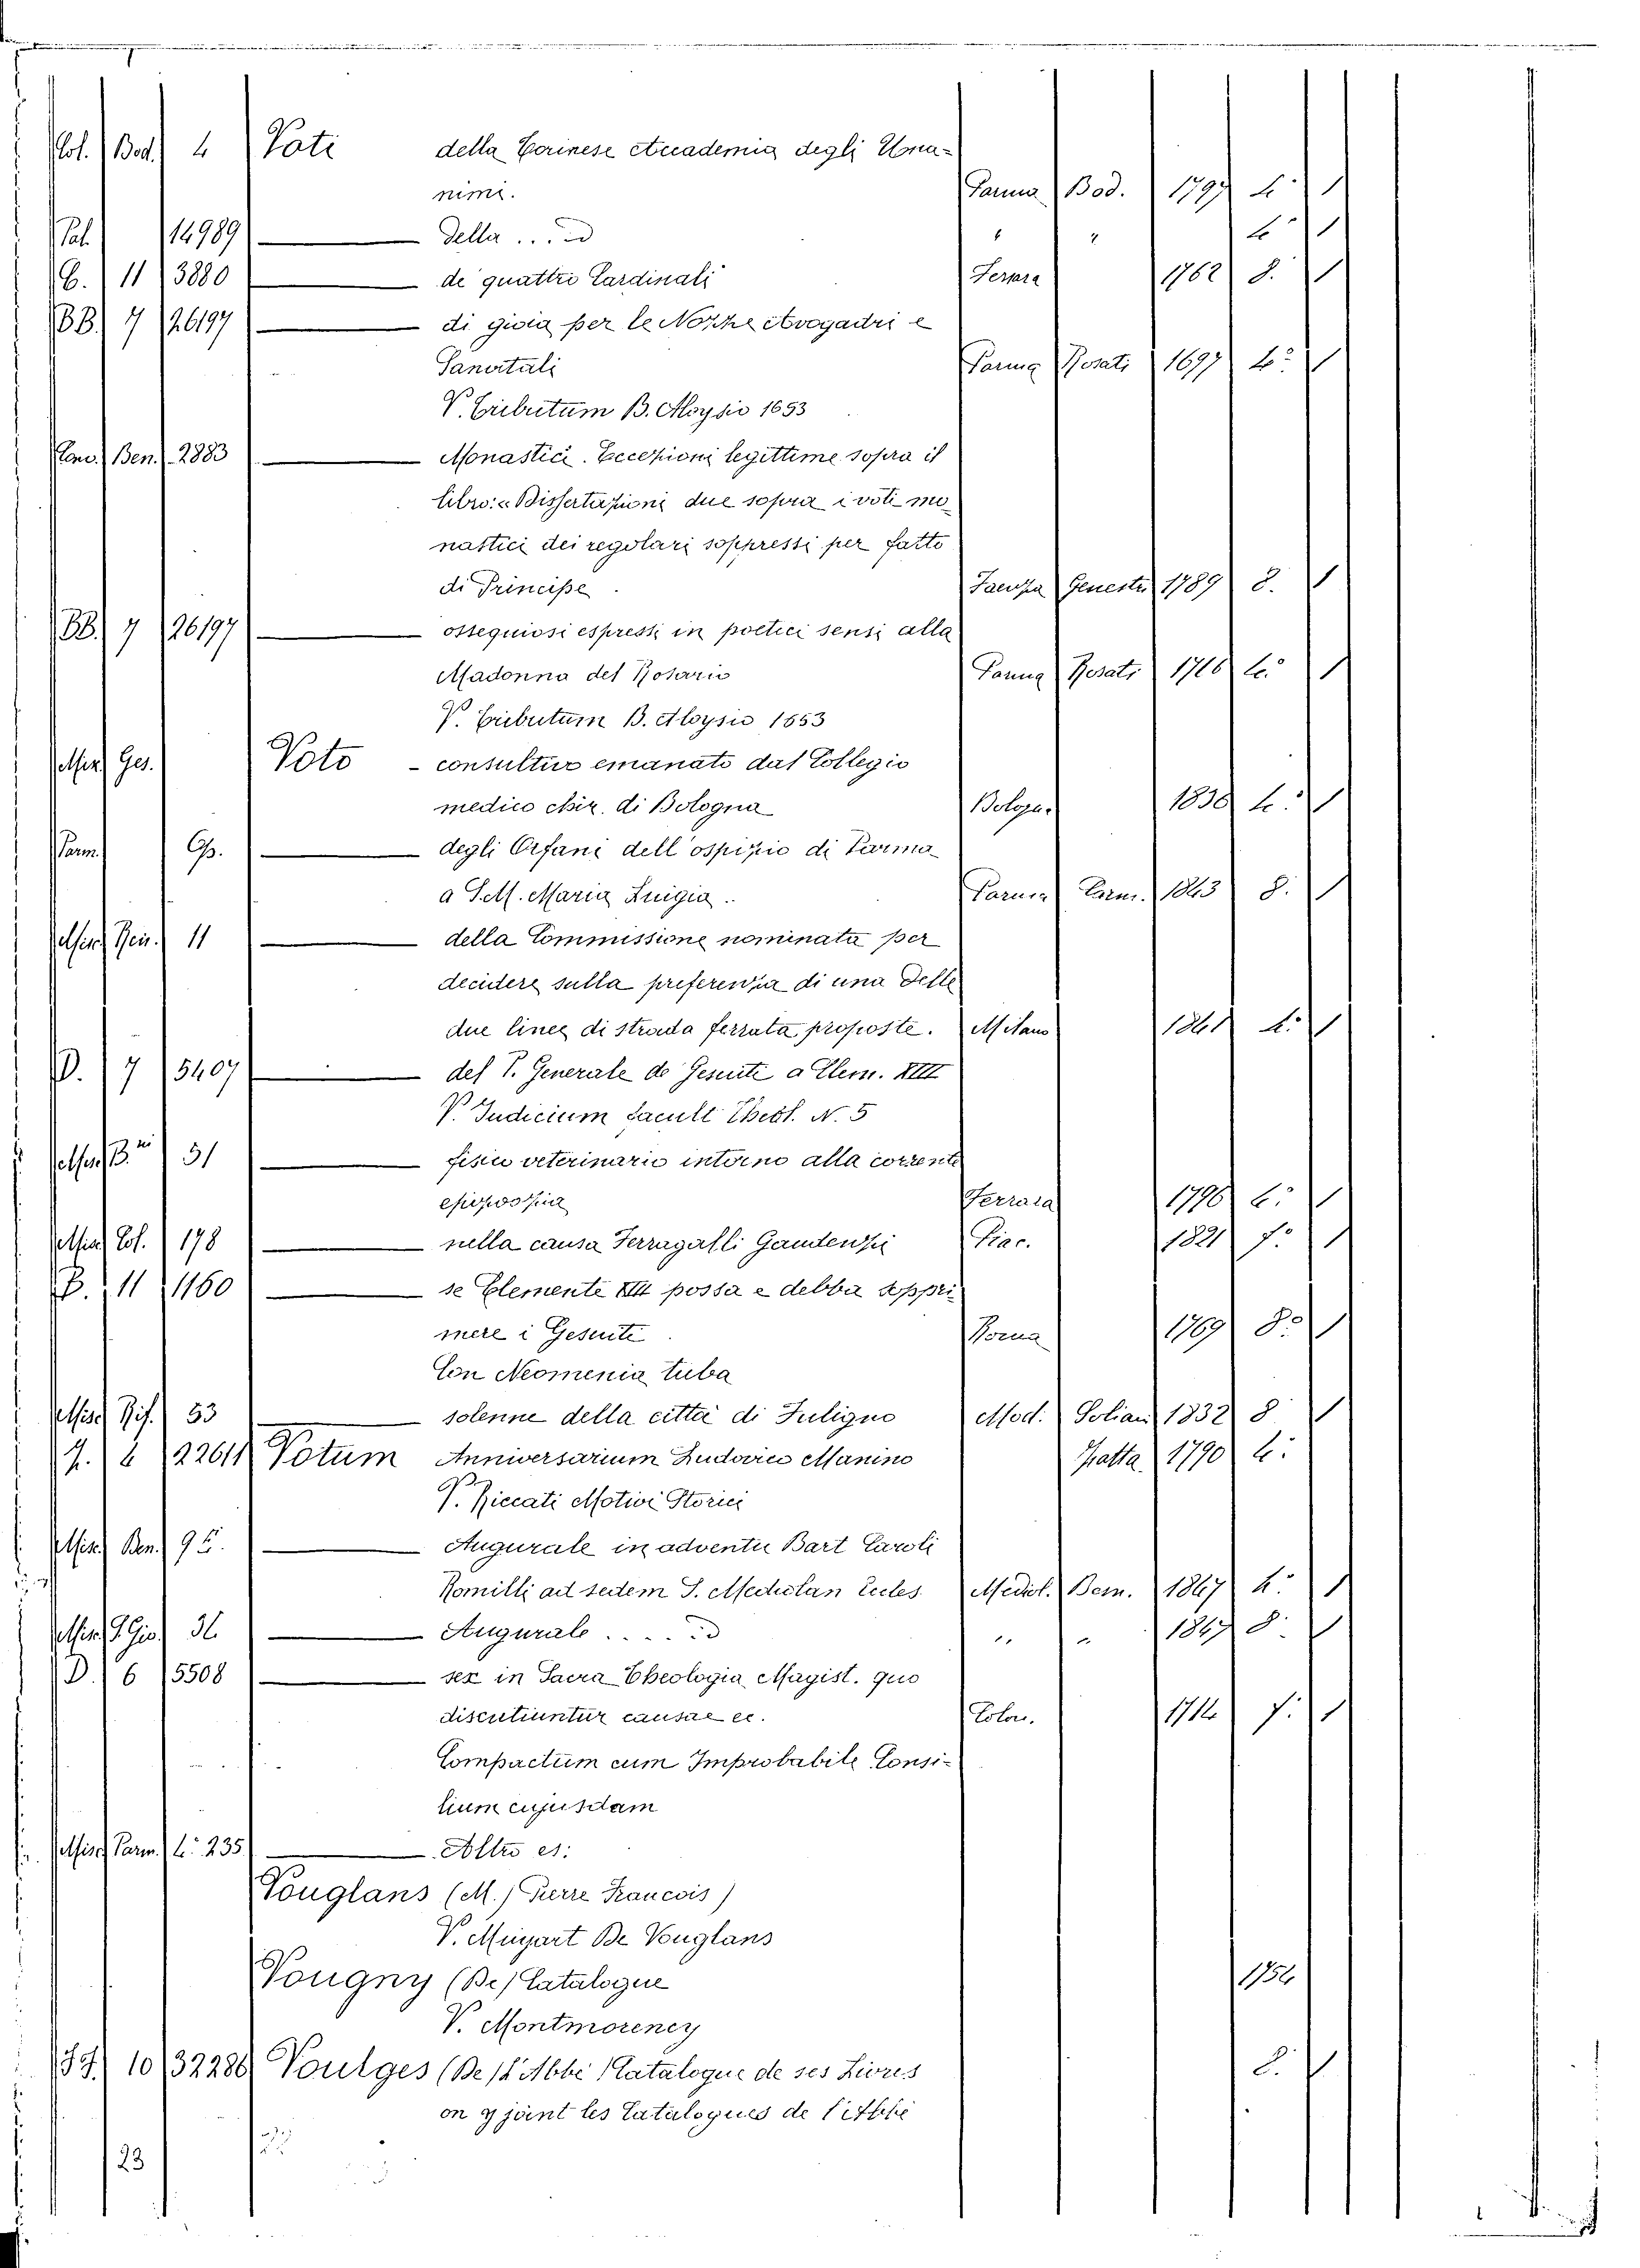 Bod. 4 Voti della Torinese Accademia degli Una-
nimi. Parma Bod. 1797 4.° 1
Pal. 14989 della .... id " " 4.° 1
B. 11 3880 de' quattro Cardinali 1762 8. 1
BB. 7 26197 di gioia per le Nozze Avogadri e
Sanvitali Parma Rosati 1697 4.° 1
V. Tributum B. Aloysio 1653
Conv. Ben. 2883 Monastici. Eccezioni legittime sopra il
libro: Dissertazioni due sopra i voti mo-
nastici dei regolari soppressi per fatto
di Principe. Faenza Genestri 1789 8. 1
BB. 7 26197 ossequiosi espressi in poetici sensi alla
Madonna del Rosario Parma Rosati 1716 4.° 1
V. Tributum B. Aloysio 1653
Misc. Ges. Voto - consultivo emanato dal Collegio
medico chir. di Bologna Bologna 1838 4. 1
Parm. degli Orfani dell'ospizio di Parma
a S. M. Maria Luigia. Parma Carm. 1843 8. 1
Misc. 11 della Commissione nominata per
decidere sulla preferenza di una delle
due linee di strada ferrata proposte. Milano 1841 4. 1
D. 7 5407 del P. Generale de Gesuiti a Clem. XIII
V. Judicium facult Theol. N. 5
Misc. 51 fisico veterinario intorno alla corrente
epizoozia Ferrara 1796 1
Misc. Col. 178 nella causa Ferragalli Gaudenzi Piac. 1821 f.° 1
B. 11 1160 se Clemente XIII possa e debba soppri-
mere i Gesuiti Roma 1769 8.° 1
Con Neomenia tuba
Misc. Rif. 53 solenne della città di Fuligno Mod. Soliani 1832 8 1
4 22611 Votum Anniversarium Ludovico Manino 1790 4.°
V. Riccati Motivi Storici
Misc. Ben. Augurale in adventu Bart Caroli
Romilli ad sedem S. Mediolan Eccles. Mediol. Bern. 1847 4.° 1
Misc. Augurale .... id " " 1847 8. 1
D. 6 5508 sex in Sacra Theologia Magist. quo
discutiuntur causae ec. Colon. 1714 1
Compactum cum Improbabile Consi-
lium cujusdam
Misc. Parm. 4.° 235 Altro es:
Vouglans (M.) Pierre Francois)
V. Muyart De Vouglans
Vougny (De) Catalogue 1754
V. Montmorency
10 32286 Voulges (De) L'Abbé) Catalogue de ses Livres 8. 1
on y joint les Catalogues de l'Abbé
23